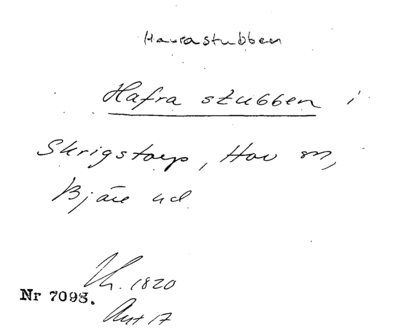 Havrastubben
Hafra stubben i
Skrigstorp, Hov sn,
Bjäre hd
Nr 7098.
1820
Akt 17